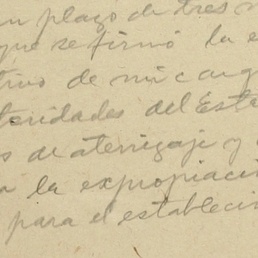 un plazo de tres m
que se firmó la e
tivo de mi carg
toridades del Esta
s de aterrizaje y
a la expropiació
para el estableci